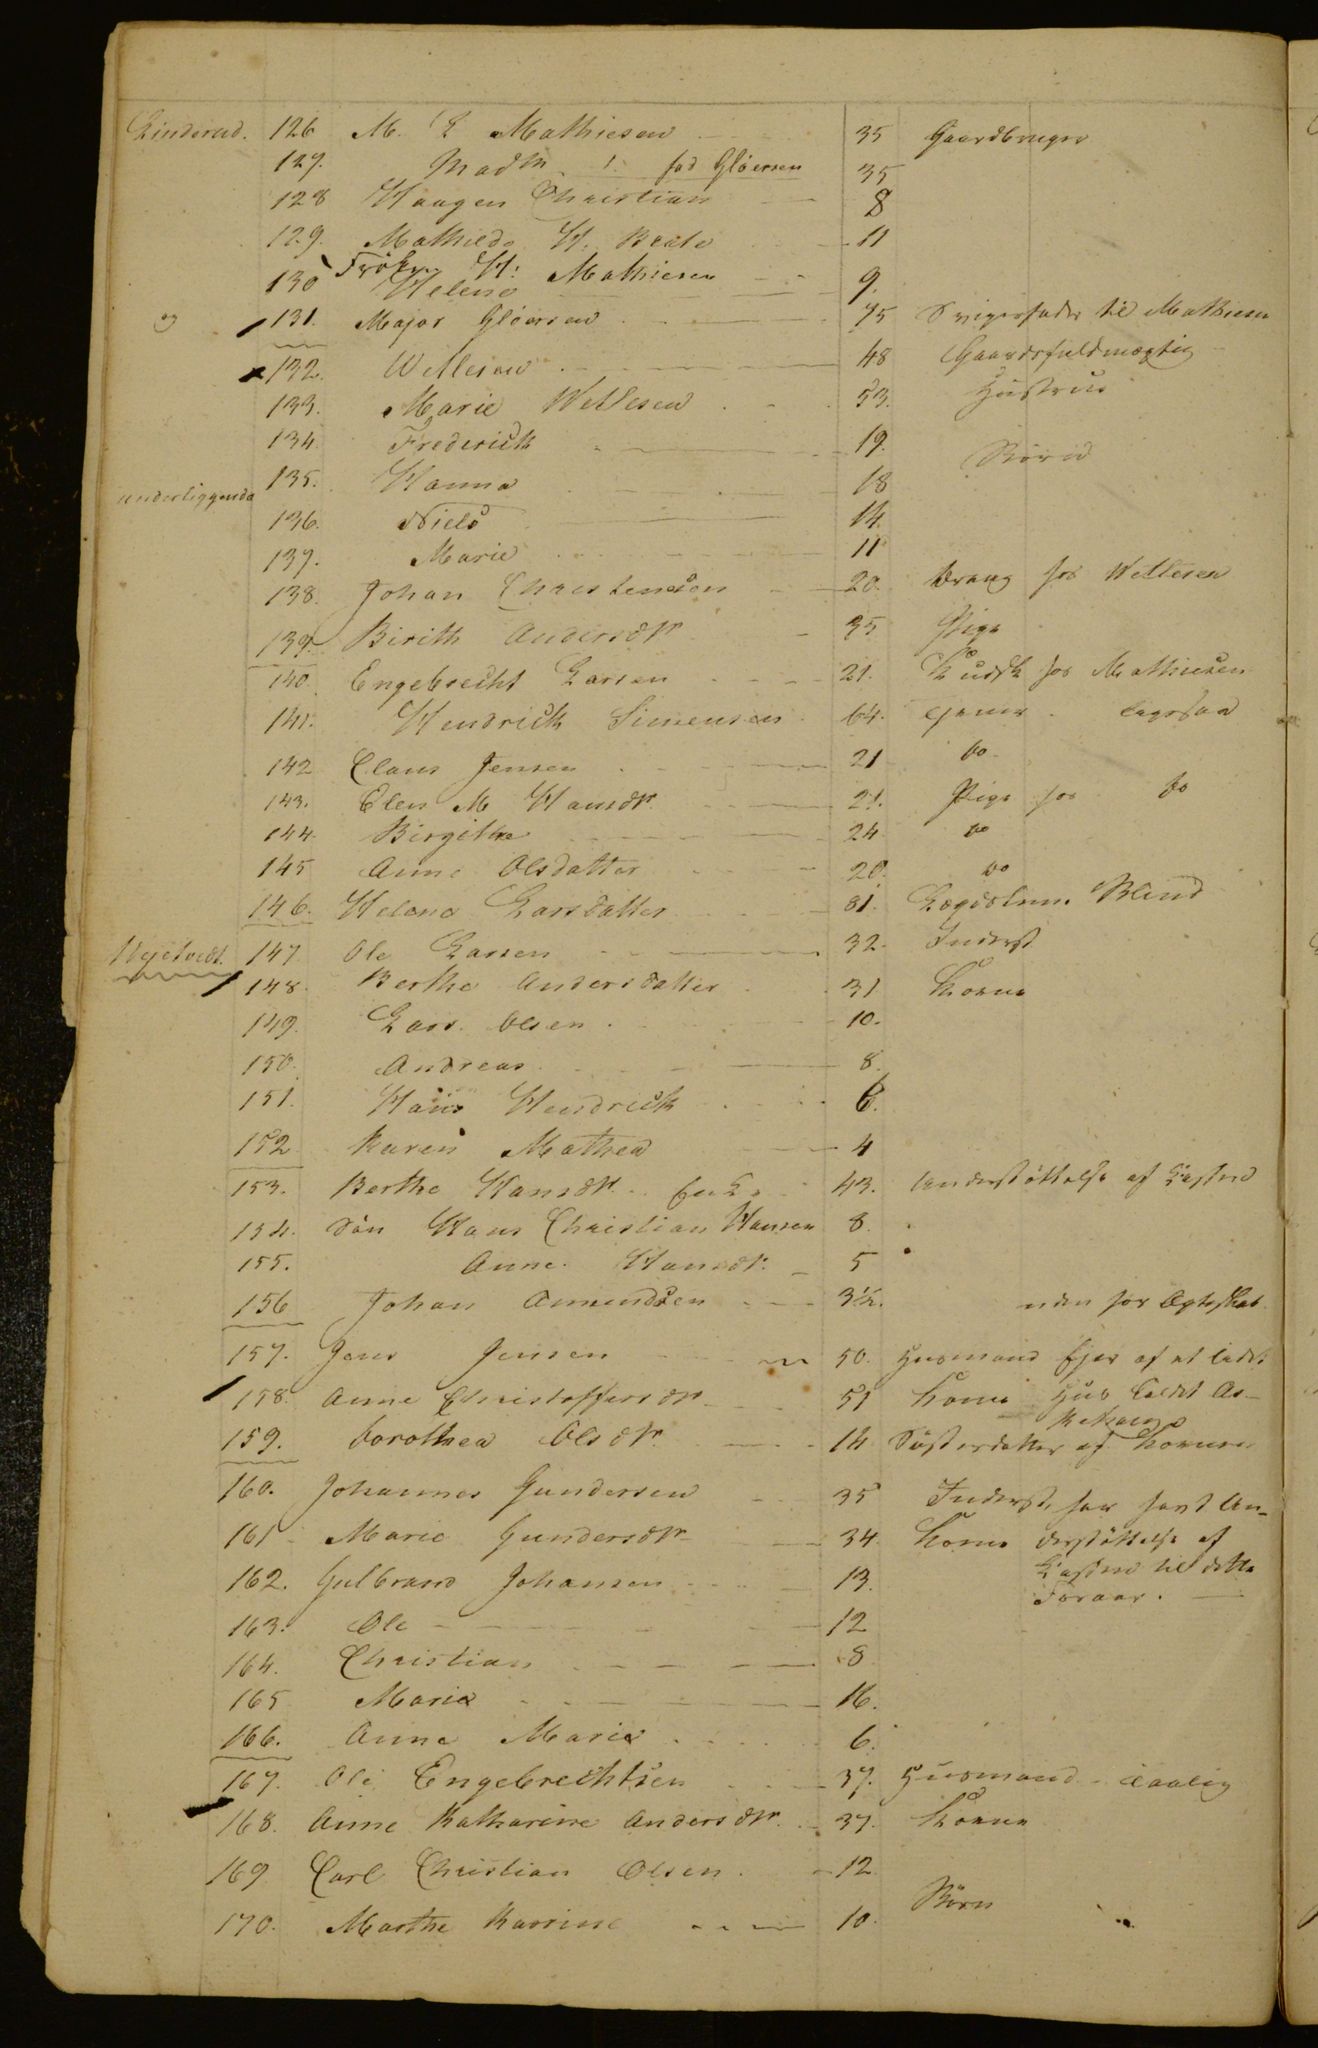 Linderud. 126 M. L Mathiesen 35 Gaardbruger
127. Madm fød Gløersen 35
128 Haagen Christian 8
129. Mathilde H. Beate 11
Frøken H: Mathiesen
130 Helene 9.
og 131. Major Gløersen 75 Svigerfader til Mathiesen
132. Wettesen 48 Gaardsfuldmægtig
133. Marie Wettesen 53. Hustrue
134. Frederick 19. Børn
underliggende 135. Hanna 18
136. Niels 14.
137. Marie 11
138. Johan Christensen 20. Dreng hos Wettesen
139. Birith Andersdtr 35 Pige
140. Engebrecht Larsen 21. Kudsk hos Mathiesen
141. Hendrick Simensen 64.
142 Claus Jensen 21 do
143. Elen M Hansdtr 21. Pige hos do
144. Birgithe 24 do
145 Anne Olsdatter 20. do
146. Helene Larsdatter 81. Lægdslem. Blind
147 Ole Larsen 32. Inderst
148. Berthe Andersdatter 31 Kone
149. Lars Olsen 10.
150. Andreas 8.
151. Hans Hendrick 6.
152 Karen Mathea 4
153. Berthe Hansdtr Enke 43. Understøttelse af
154. Søn Hans Christian Hansen 8.
155. Anne Hansdtr. 5
156 Johan Amundsen 3½. uden for Ægteskab
157. Jens Jensen 50. Husmand Ejer af et lidet
158. Anne Christoffersdtr 51 Kone Huus kaldt
159. Dorothea Olsdtr. 14 Søsterdatter af Konen
160. Johannes Gundersen 35 Inderst, har havt Un-
161 Marie Gundersdtr 34. Kone derstøttelse af
162. Gulbrand Johansen 13. til dette
Foraar.
163. Ole 12
164. Christian 8
165 Maria 16.
166. Anne Marie 6.
167. Ole Engebrechtsen 37. Husmand
168. Anne Katharine Andersdtr. 37. Kone
169 Carl Christian Olsen 12
Børn
170. Marthe Karrine 10.